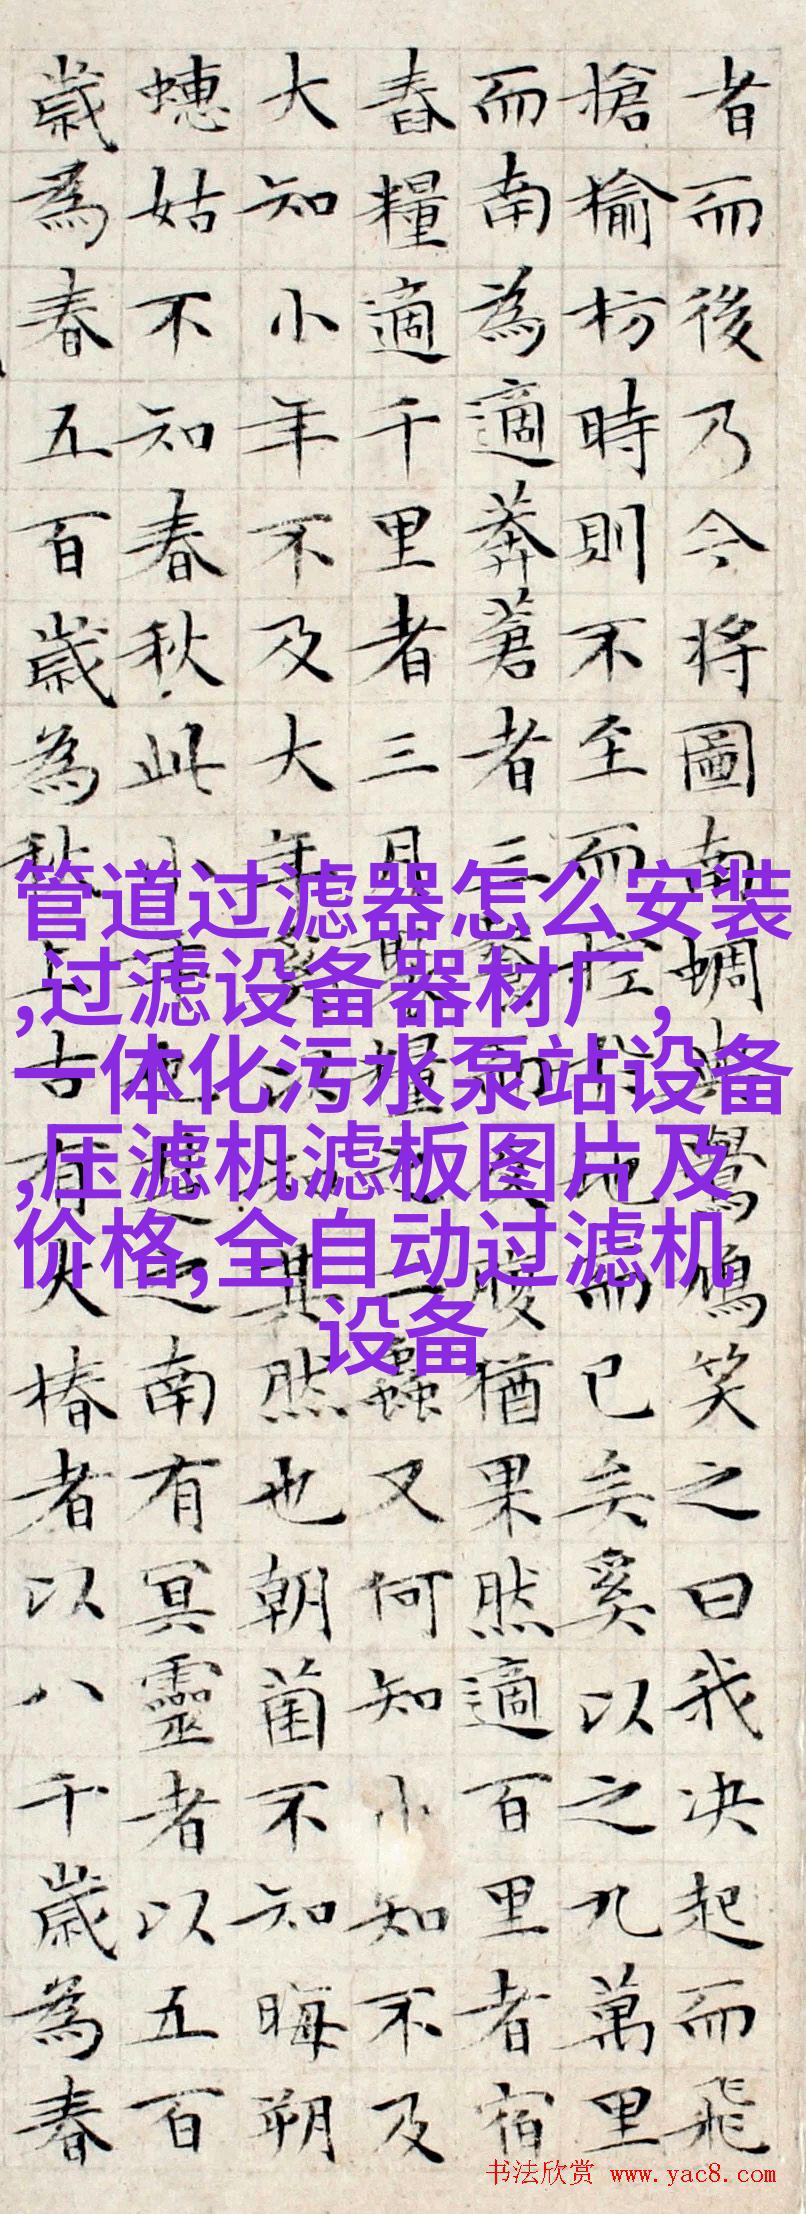 者而後乃今將圖南蜩與鷽鳩笑之曰我决起而飛
搶榆枋時則不至而控於地而已矣奚以之九萬里
而南為適莽蒼者三飡而反腹猶果然適百里者宿
舂糧適千里者三月聚糧之二蟲又何知小知不及
大知小年不及大年奚以知其然也朝菌不知晦朔
蟪姑不知春秋此小年也楚之南有冥靈者以五百
歲為春五百歲為秋上古有大椿者以八千歲為春
管道过滤器怎么安装
,过滤设备器材厂,
一体化污水泵站设备
,压滤机滤板图片及
价格,全自动过滤机
设备
书法欣赏 www.yac8.com